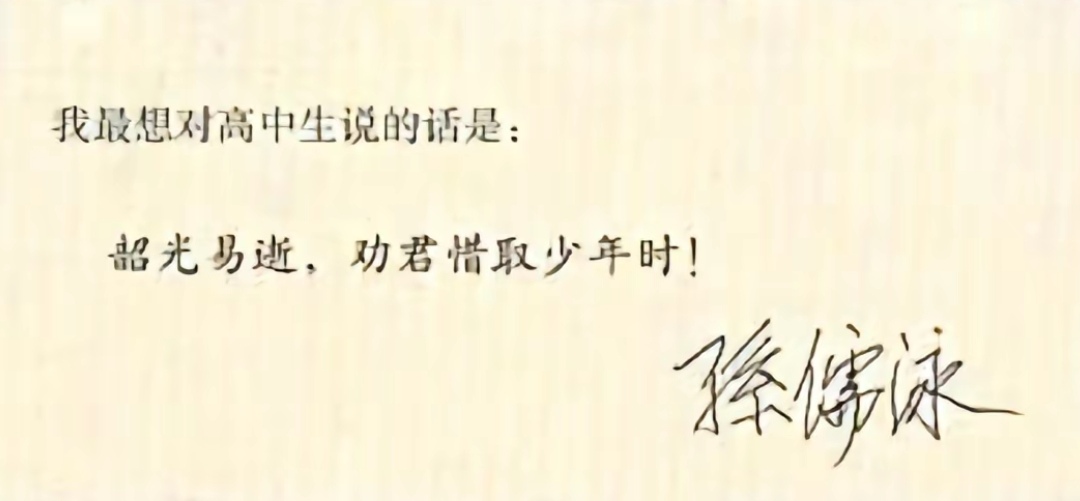 我最想对高中生说的话是：
韶光易逝，劝君惜取少年时！
孫儒泳